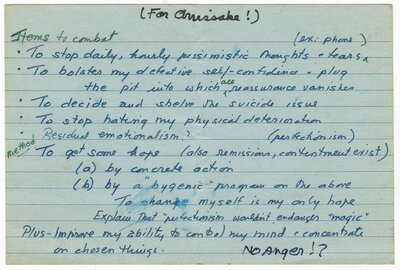 (For Chrissake!)
Items to combat (ex: phone)
• To stop daily, hourly pessimistic thoughts & fears
• To bolster my defective self-confidence & plug
the pit into which all reassurance vanishes
• To decide and shelve the suicide issue
• To stop hating my physical deterioration
• Residual emotionalism? (perfectionism)
method • To get some hope (also remissions, contentment exist)
(a) by concrete action
(b) by a "hygenic" program on the above
To change myself is my only hope
Explain that "perfectionism wouldn't endanger "magic"
Plus - Improve my ability to control my mind & concentrate
on chosen things. No Anger!?